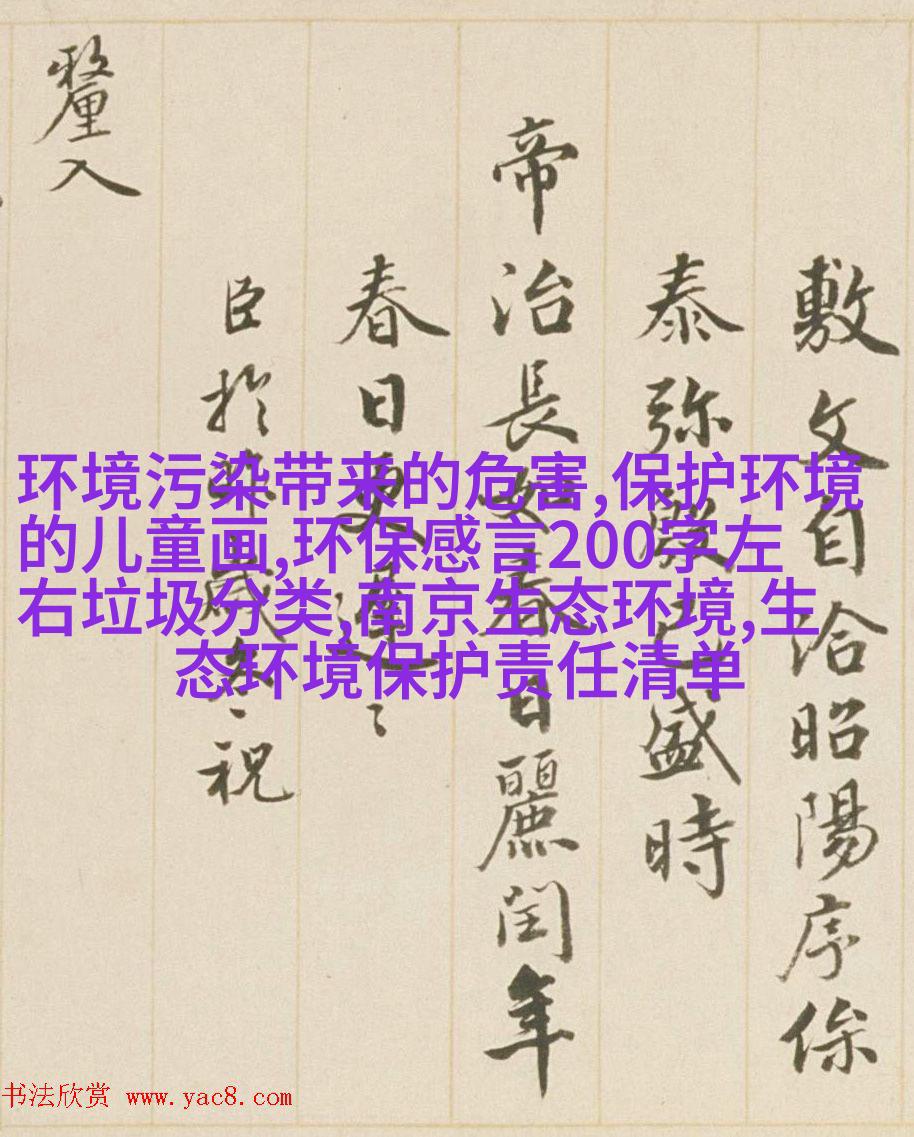 环境污染带来的危害,保护环境
的儿童画,环保感言200字左
右垃圾分类,南京生态环境,生
态环境保护责任清单
敷文自洽昭陽序
泰弥殷已盛時
帝治長春日麗閏年
春日更遲々
臣於歲祝
釐入
书法欣赏 www.yac8.com